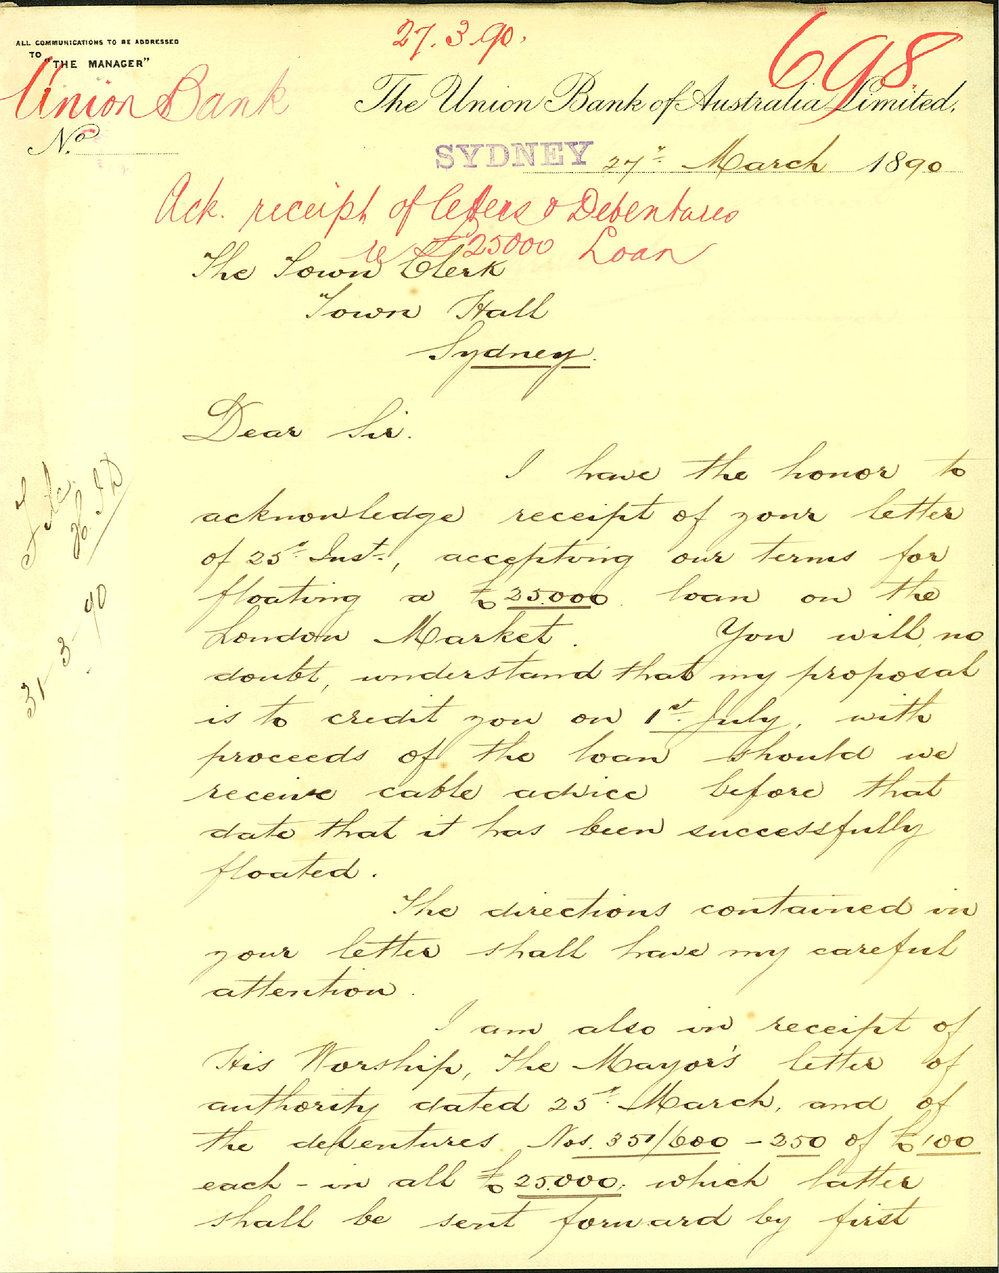 27.3.90.
698
ALL COMMUNICATIONS TO BE ADDRESSED
TO "THE MANAGER"
Union Bank
The Union Bank of Australia Limited,
No.
SYDNEY 27th March 1890
Ack. receipt of letters & Debentures
re £25000 Loan
The Town Clerk
Town Hall
Sydney.
Dear Sir.
I have the honor to
acknowledge receipt of your letter
of 25th Inst., accepting our terms for
floating a £25.000 loan on the
London Market. You will, no
doubt, understand that my proposal
is to credit you on 1st July, with
proceeds of the loan should we
receive cable advice before that
date that it has been successfully
floated.
The directions contained in
your letter shall have my careful
attention.
I am also in receipt of
His Worship, the Mayor's letter of
authority dated 25th March, and of
the debentures Nos. 351/600 - 250 of £100
each - in all £25.000; which latter
shall be sent forward by first
File
31-3-90